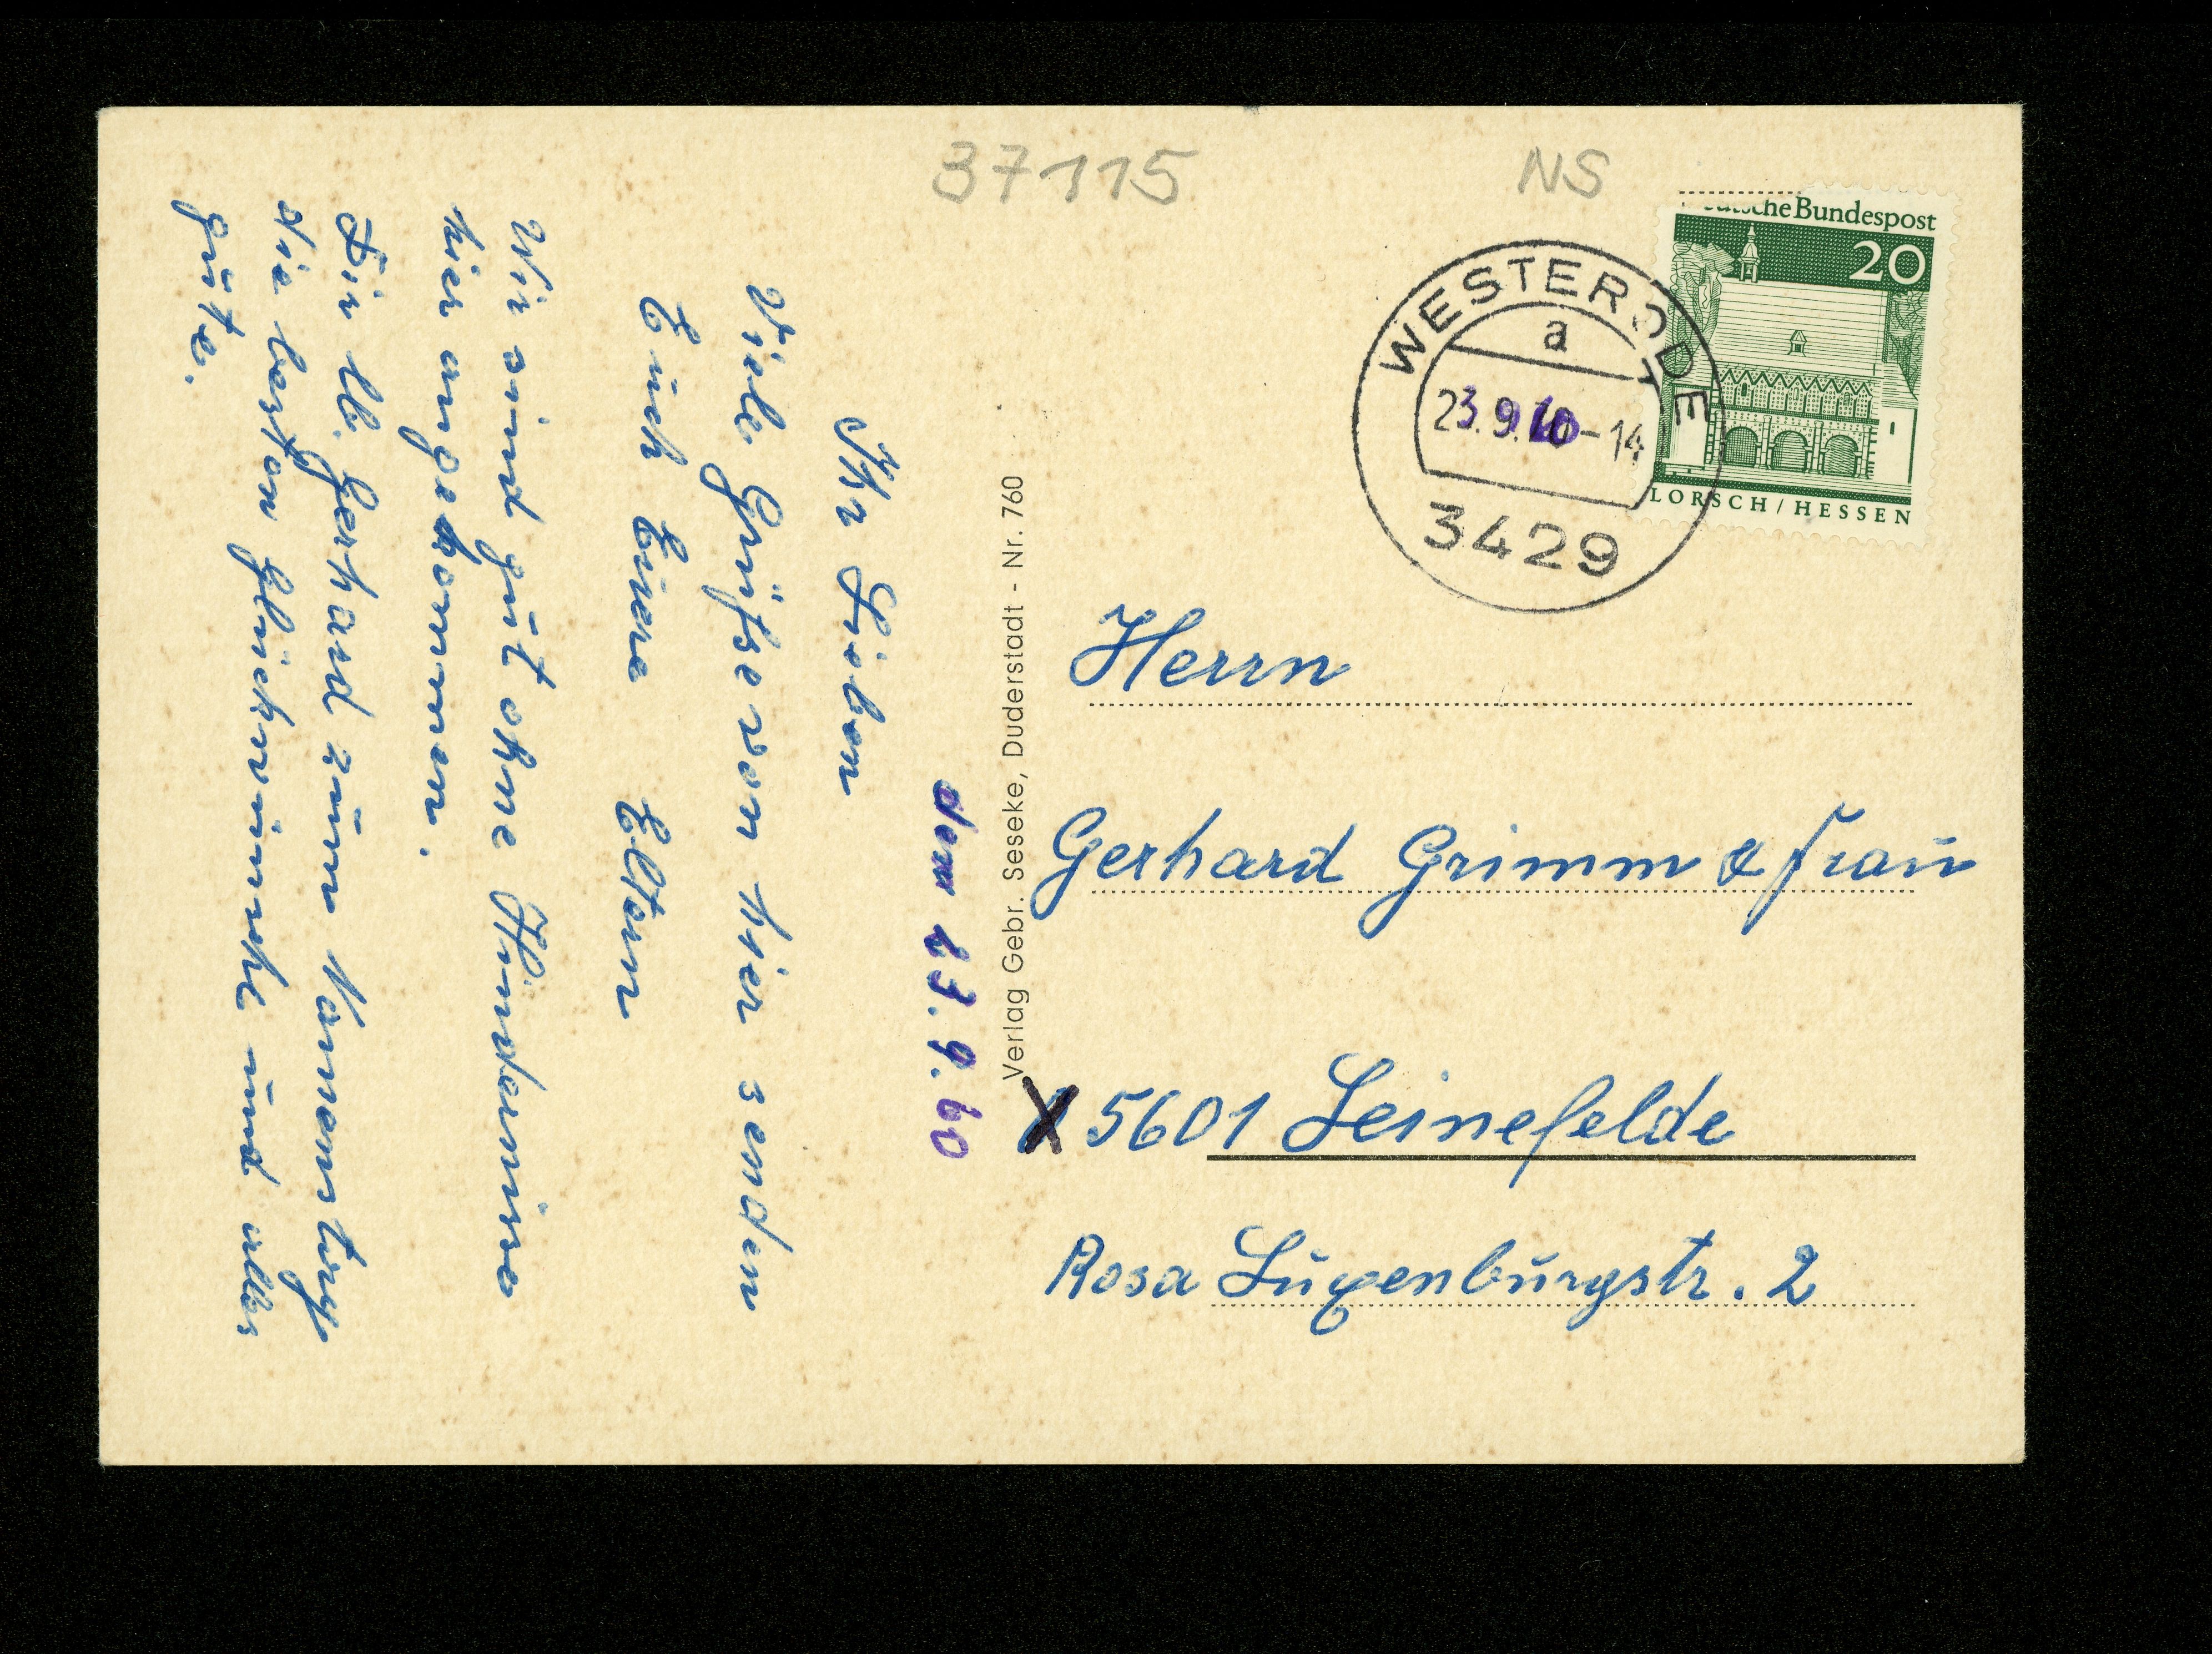 37115
NS
Deutsche Bundespost
20
LORSCH/HESSEN
WESTERODE
a
23.9. -14
3429
Herrn
Gerhard Grimm & Frau
X 5601 Leinefelde
Rosa Luxenburgstr. 2
Verlag Gebr. Seseke, Duderstadt - Nr. 760
den 23.9.60
Ihr Lieben
Viele Grüße von hier senden
Euch Eure Eltern
Wir sind gut ohne Hindernisse
hier angekommen.
Dir lb. Gerhard zum Namenstag
die besten Glückwünsche und alles
gute.